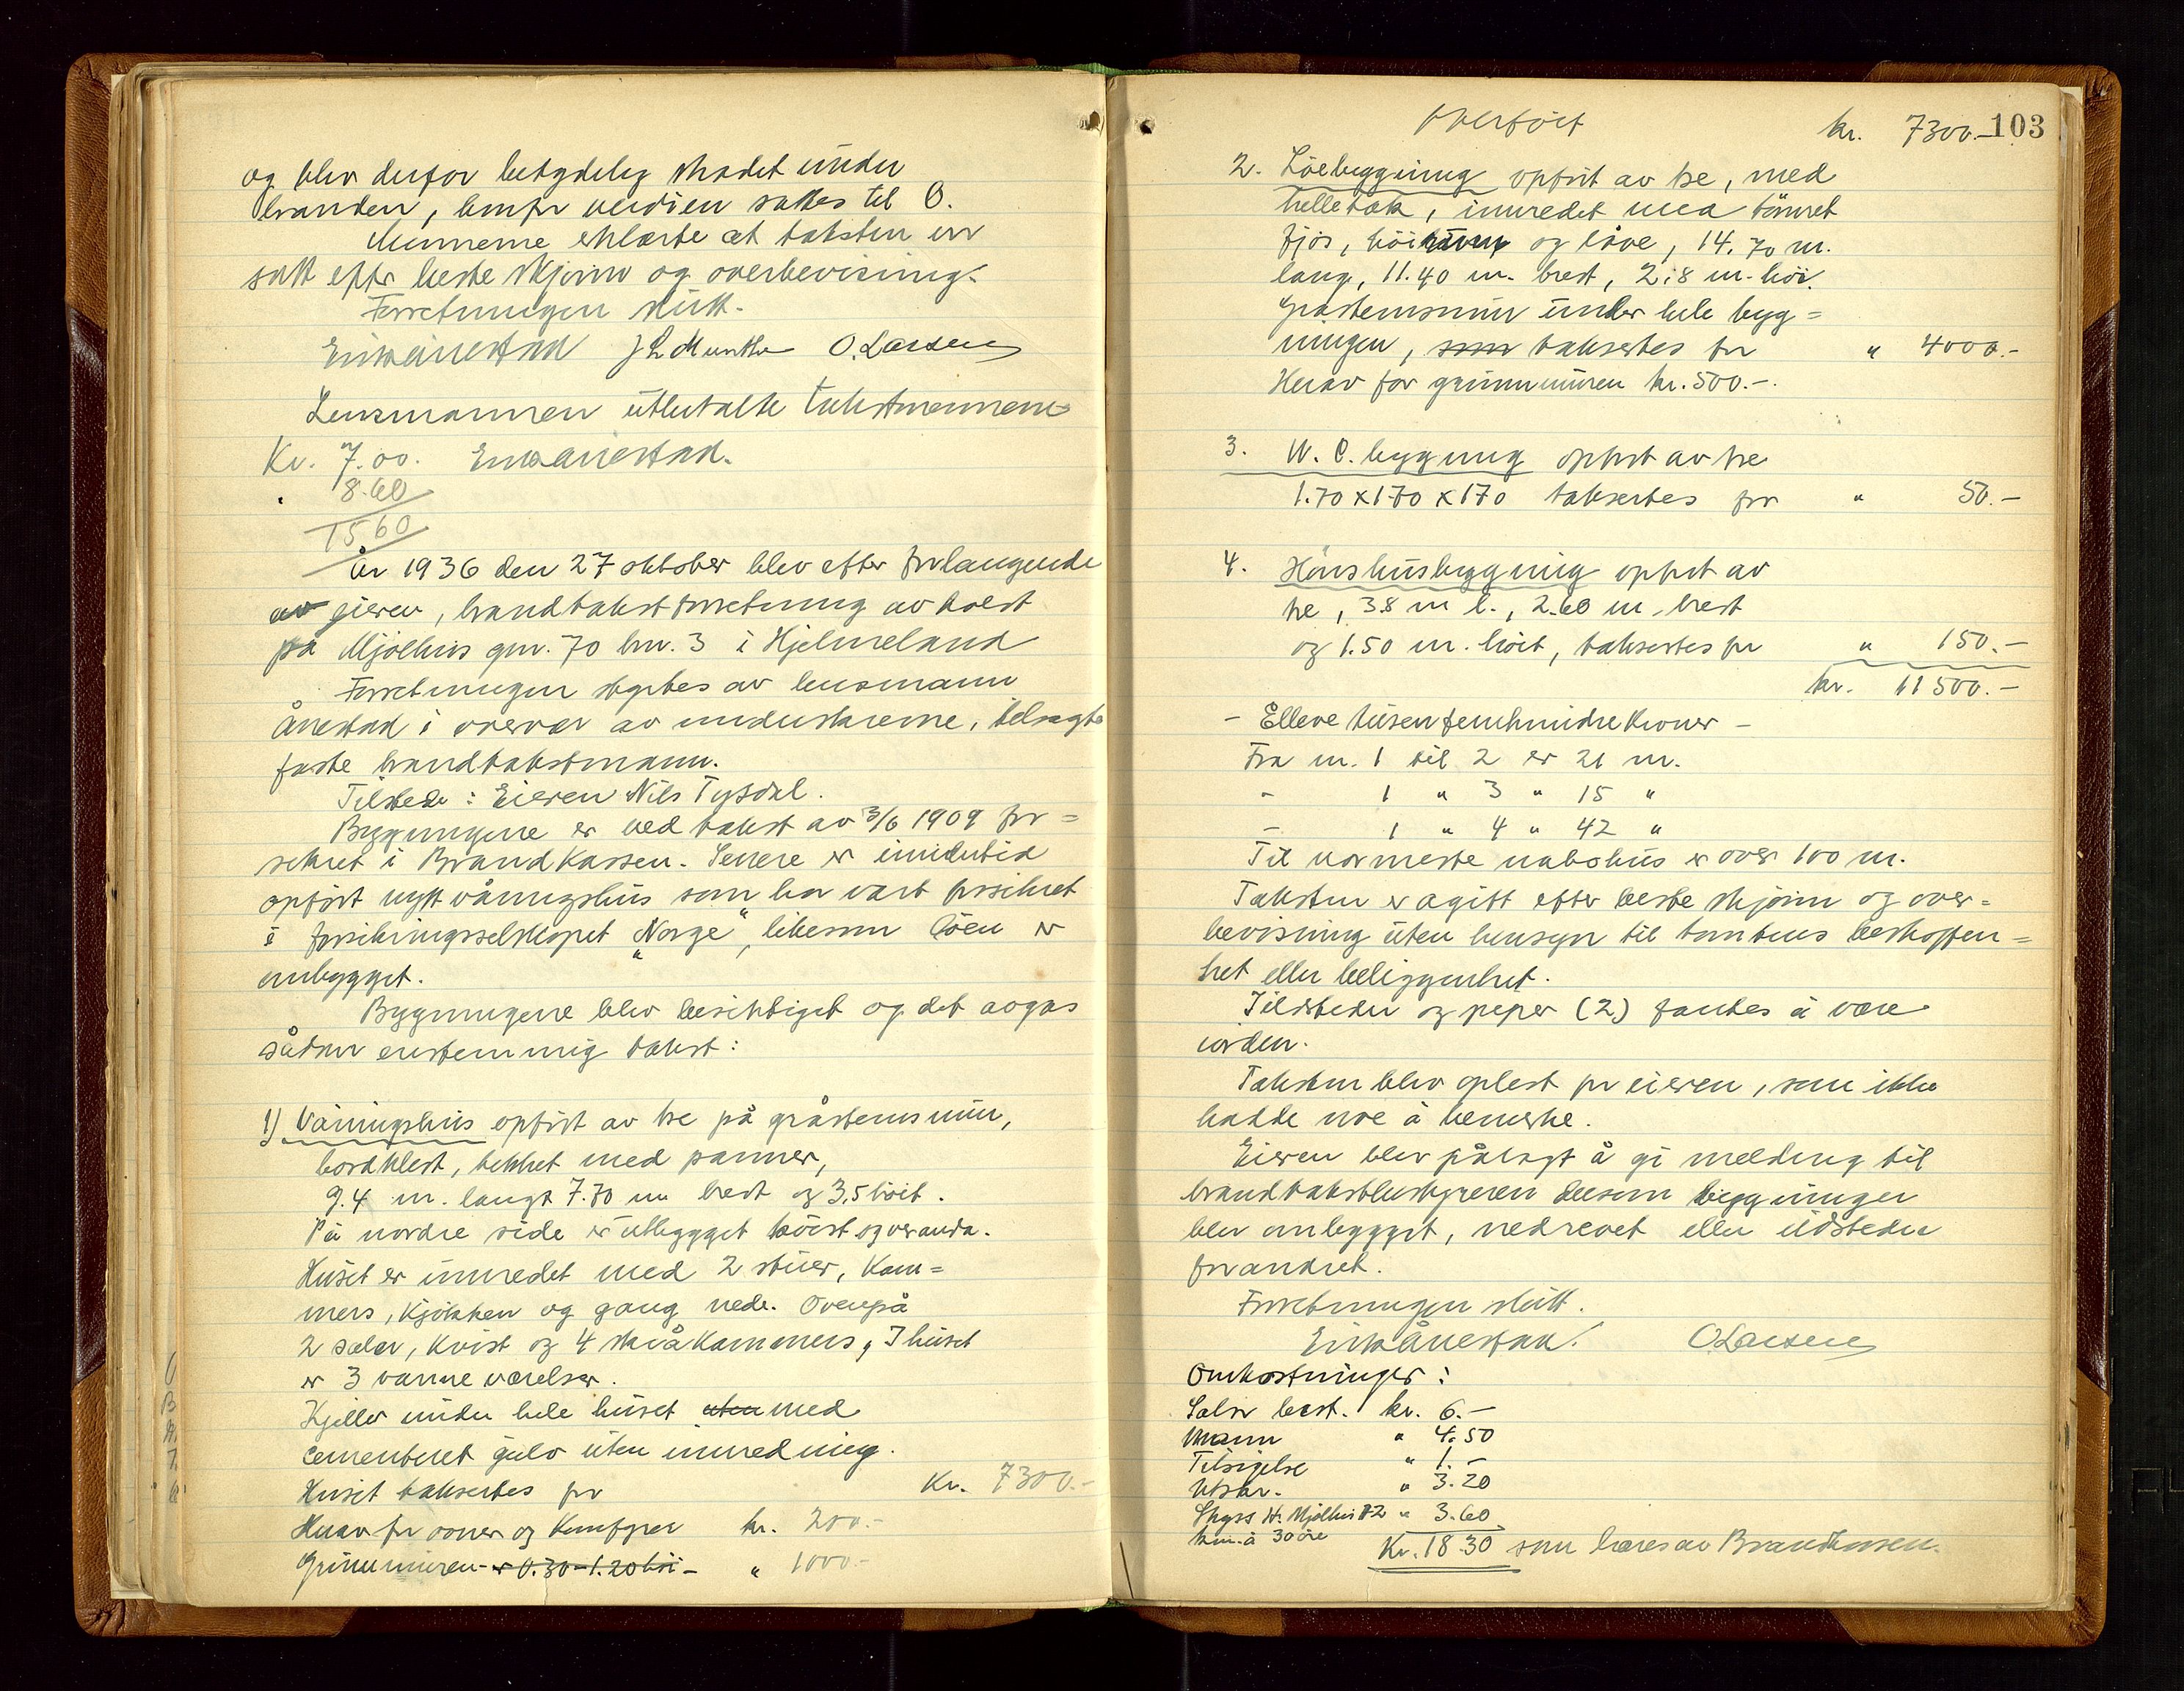 og blev derfor betydelig skadet under
branden, hvorfor verdien sattes til 0.
Mennerne erklærte at taksten er
satt efter beste skjønn og overbevisning.
Forretningen slutt.
Erik Ånestad J L Munthe O. Larsen
Lensmannen utbetalte takstmennene
Kr. 7.00. Erik Ånestad.
" 8.60
15 60
År 1936 den 27 oktober blev efter forlangende
av eieren, brandtakstforretning avholdt
på Mjølhus gnr. 70 bnr. 3 i Hjelmeland
Forretningen styrtes av lensmann
Ånestad i overvær av underskrevne, tilsagte
faste brandtakstmann.
Tilstede: Eieren Nils Tysdal.
Bygningene er ved takst av 3/6 1909 for=
sikret i Brandkassen. Senere er imidlertid
opført nytt våningshus som har vært forsikret
i forsikringsselskapet "Norge", likesom løen er
ombygget.
Bygningene blev besiktiget og det avgas
sådan enstemmig takst:
1) Våningshus opført av tre på gråstensmur,
bordklædt, tekket med panner,
9.4 m. langt 7.70 m bredt og 3,5 høit.
På nordre side er utbygget kvist og veranda.
Huset er innredet med 2 stuer, Kam=
mers, Kjøkken og gang nede. Ovenpå
2 saler, Kvist og 4 skråkammers, I huset
er 3 varme værelser.
Kjeller under hele huset uten med
cementeret gulv uten innredning.
Huset taksertes for Kr. 7300.-
Herav for ovner og Komfyrer kr. 200.-
Grunnmuren - er 0.30-1.20 høi - " 1000.-
Overført kr. 7300.- 103
2. Løebygging opført av tre, med
helletak, innredet med tømret
fjøs, høirum og låve, 14.70 m.
lang, 11.40 m. bredt, 2.8 m. høi.
Gråstensmur under hele byg=
ningen, som taksertes for " 4000.-
Herav for grunnmuren kr. 500.-.
3. W. C. bygning opført av tre
1.70 x 1.70 x 170 taksertes for " 50.-
4. Hønshusbygning opført av
tre, 3.8 m l., 2.60 m bredt
og 1.50 m. høit, taksertes for " 150.-
kr. 11500.-
- Elleve tusen femhundre Kroner -
Fra nr. 1 til 2 er 21 m.
- 1 " 3 " 15 "
- 1 " 4 " 42 "
Til nærmeste nabohus er over 100 m.
Taksten er avgitt efter beste skjønn og over=
bevisning uten hensyn til tomtens beskaffen=
het eller beliggenhet.
Ildsteder og piper (2) fantes å være
iorden.
Taksten blev oplest for eieren, som ikke
hadde noe å bemerke.
Eieren blev pålagt å gi melding til
brandtakstbestyreren dersom bygninger
blev ombygget, nedrevet eller ildsteder
forandret.
Forretningen slutt.
Erik Ånestad. O Larsen
Omkostninger:
Salær best. kr. 6.-
Mann " 4.50
Tilsigelse " 1.-
Utskr. " 3.20
Skyss H. Mjølhus 12 " 3.60
km. à 30 øre
Kr. 18.30 som bæres av Brandkassen.